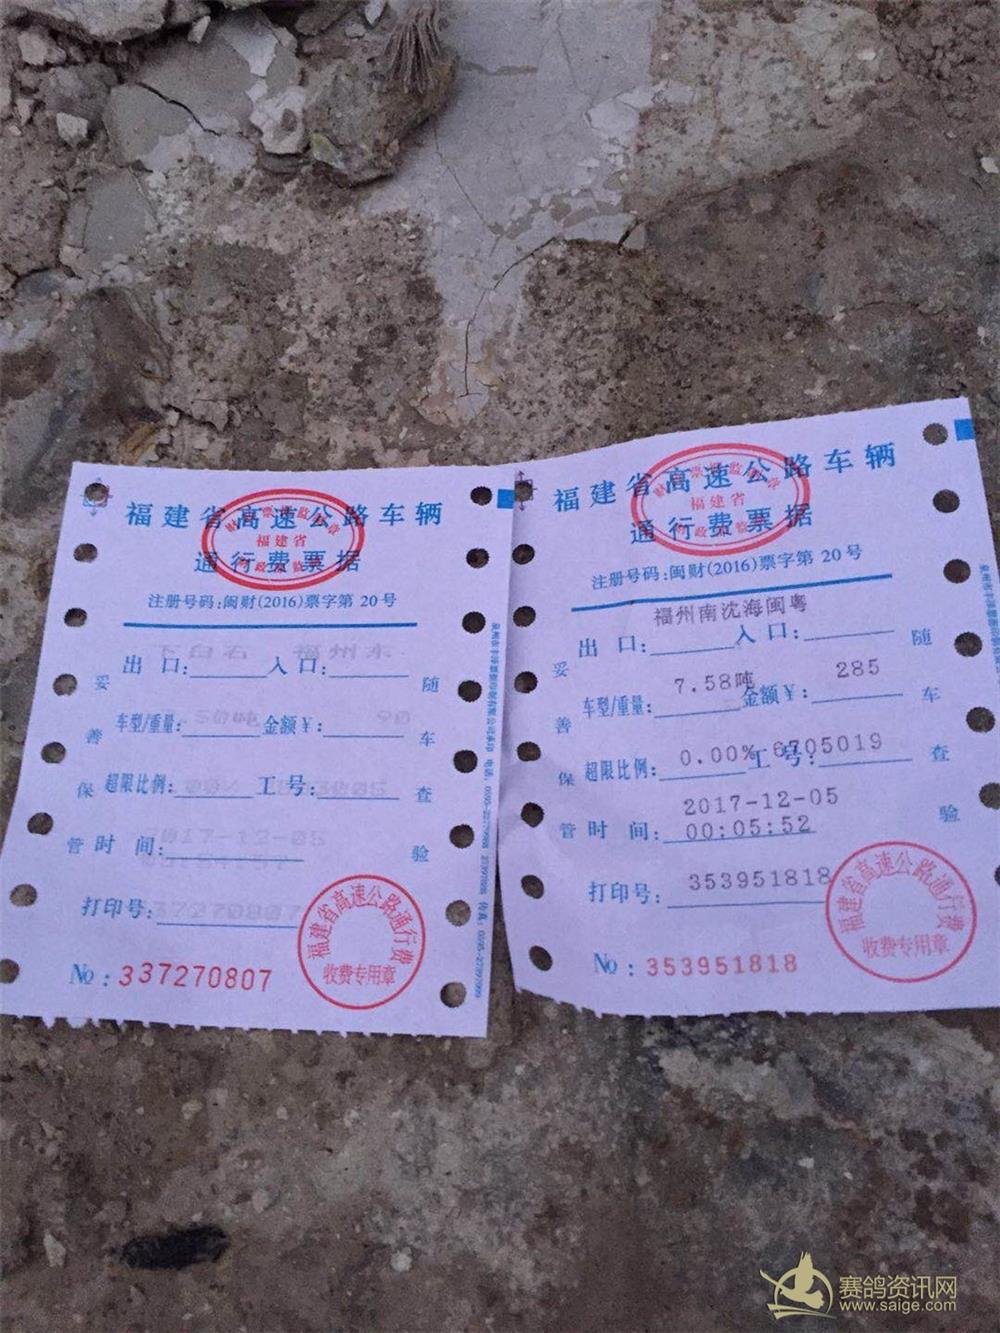 福建省高速公路车辆
通行费票据
财政票据监制章
福建省
财政部监制
注册号码:闽财(2016)票字第 20号
下白石 福州东
出 口: 入 口:
车型/重量: 金额￥: 90
超限比例: 工 号:
2017-12-05
时 间:
打印号: 337270807
№: 337270807
妥善保管
随车查验
福建省高速公路通行费
收费专用章
福建省高速公路车辆
通行费票据
福建省
注册号码:闽财(2016)票字第 20号
福州南沈海闽粤
出 口: 入 口:
车型/重量: 7.58吨 金额￥: 285
超限比例: 0.00% 工 号: 6705019
2017-12-05
时 间: 00:05:52
打印号: 353951818
№: 353951818
妥善保管
随车查验
福建省高速公路通行费
收费专用章
赛鸽资讯网
www.saige.com